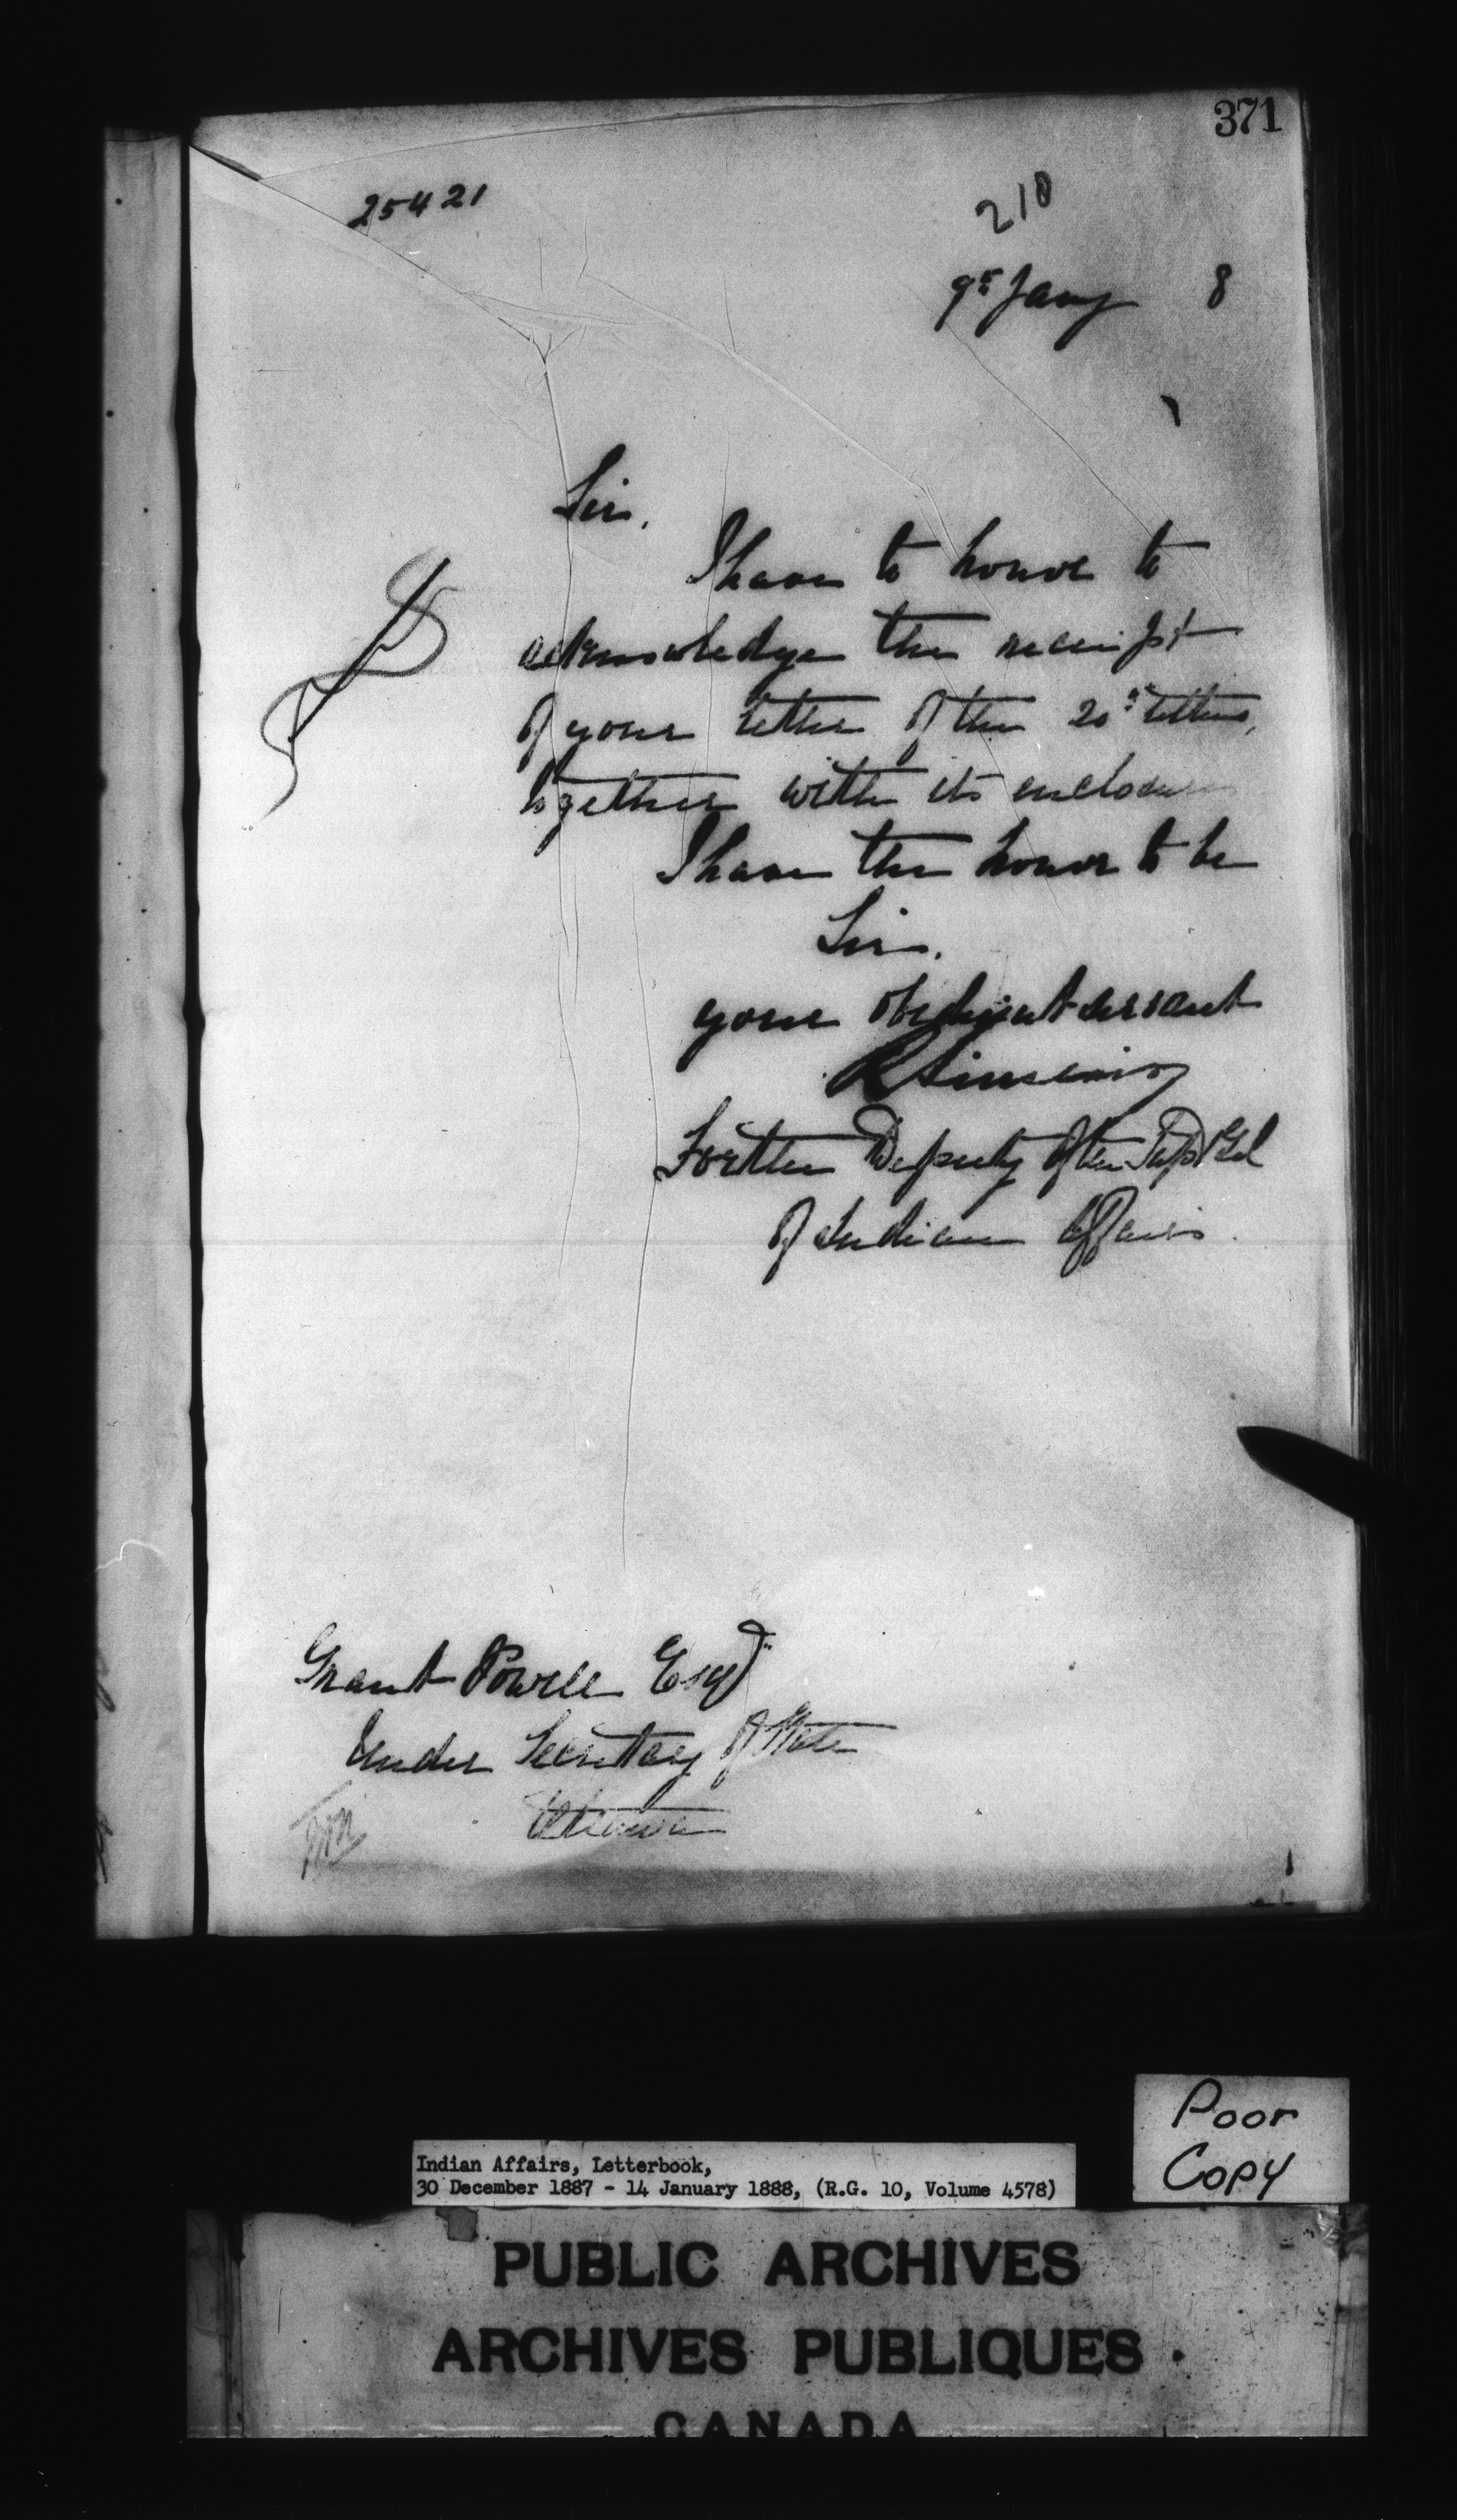 371
25421
210
9th Jany 8
Sir,
I have to honor to
acknowledge the receipt
of your letter of the 20th ultimo,
together with its enclosure
I have the honor to be
Sir,
your obedient servant
R Sinclair
For the Deputy of the Supt Genl
of Indian Affairs
Grant Powell Esqr
Under Secretary of State
Ottawa
Poor
Copy
Indian Affairs, Letterbook,
30 December 1887 - 14 January 1888, (R.G. 10, Volume 4578)
PUBLIC ARCHIVES
ARCHIVES PUBLIQUES
CANADA